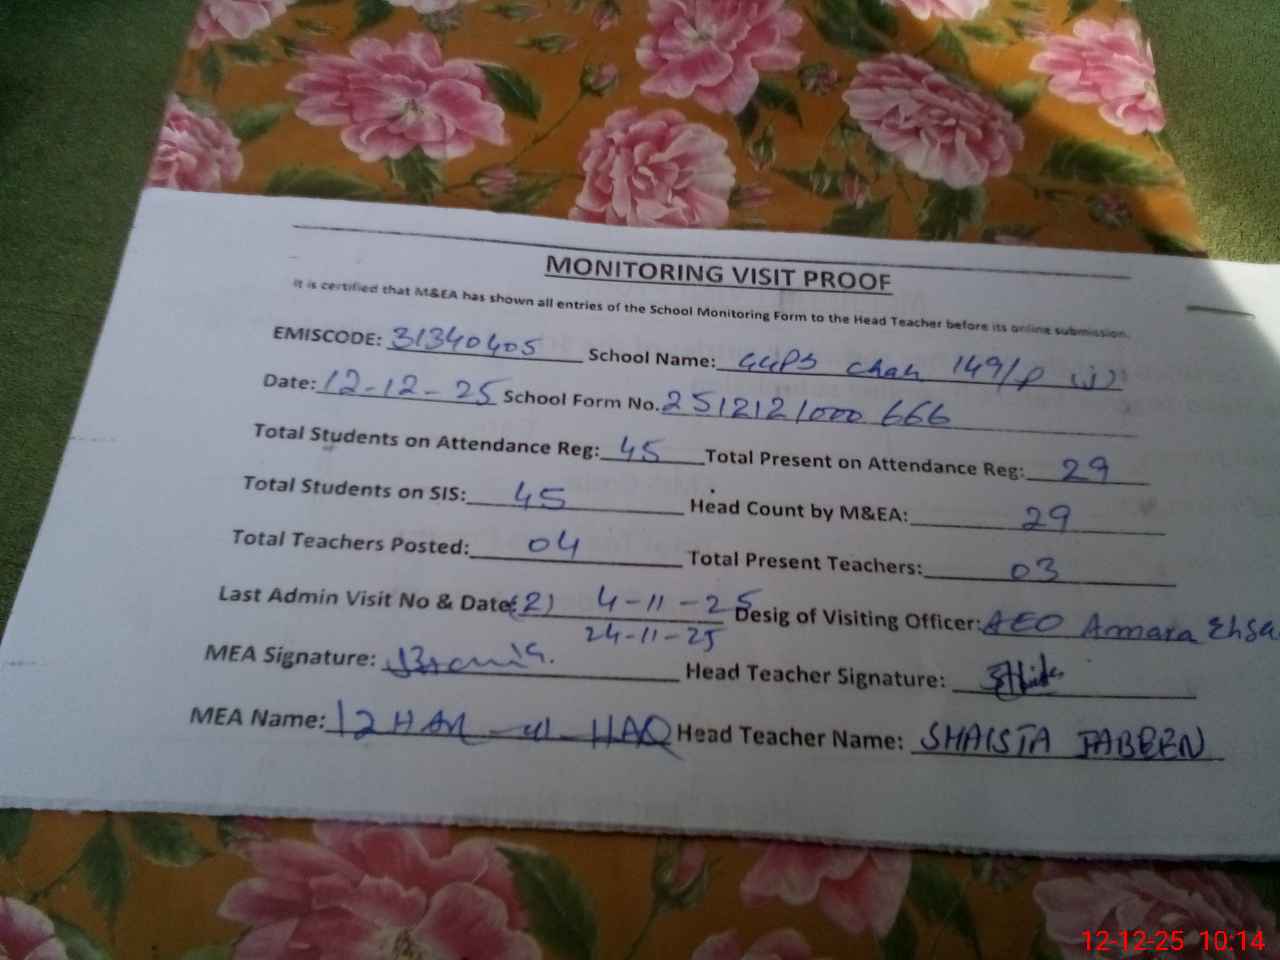 MONITORING VISIT PROOF
It is certified that M&EA has shown all entries of the School Monitoring Form to the Head Teacher before its online submission.
EMISCODE: 31340405 School Name: GGPS chah 149/P
Date: 12-12-25 School Form No. 2512121000666
Total Students on Attendance Reg: 45 Total Present on Attendance Reg: 29
Total Students on SIS: 45 Head Count by M&EA: 29
Total Teachers Posted: 04 Total Present Teachers: 03
Last Admin Visit No & Date: (2) 4-11-25 Desig of Visiting Officer: AEO Ammara Ehsa
24-11-25
MEA Signature: Head Teacher Signature:
MEA Name: IZHAR-ul-HAQ Head Teacher Name: SHAISTA JABEEN
12-12-25 10:14